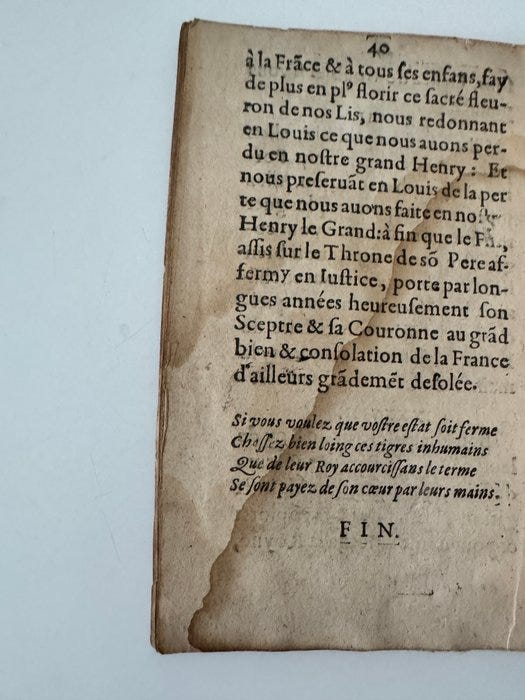 40
à la Frāce & à tous ſes enfans, fay
de plus en plꝰ florir ce ſacré fleu-
ron de nos Lis, nous redonnant
en Louis ce que nous auons per-
du en noſtre grand Henry : Et
nous preſeruāt en Louis de la per
te que nous auons faite en noſtre
Henry le Grand: à fin que le Fils,
aſſis ſur le Throne de sō Pere af-
fermy en Iuſtice, porte par lon-
gues années heureuſement ſon
Sceptre & ſa Couronne au grād
bien & conſolation de la France
d'ailleurs grādemēt deſolée.
Si vous voulez que voſtre eſtat ſoit ferme
Chaſſez bien loing ces tigres inhumains
Que de leur Roy accourciſſans le terme
Se ſont payez de ſon cœur par leurs mains.
FIN.